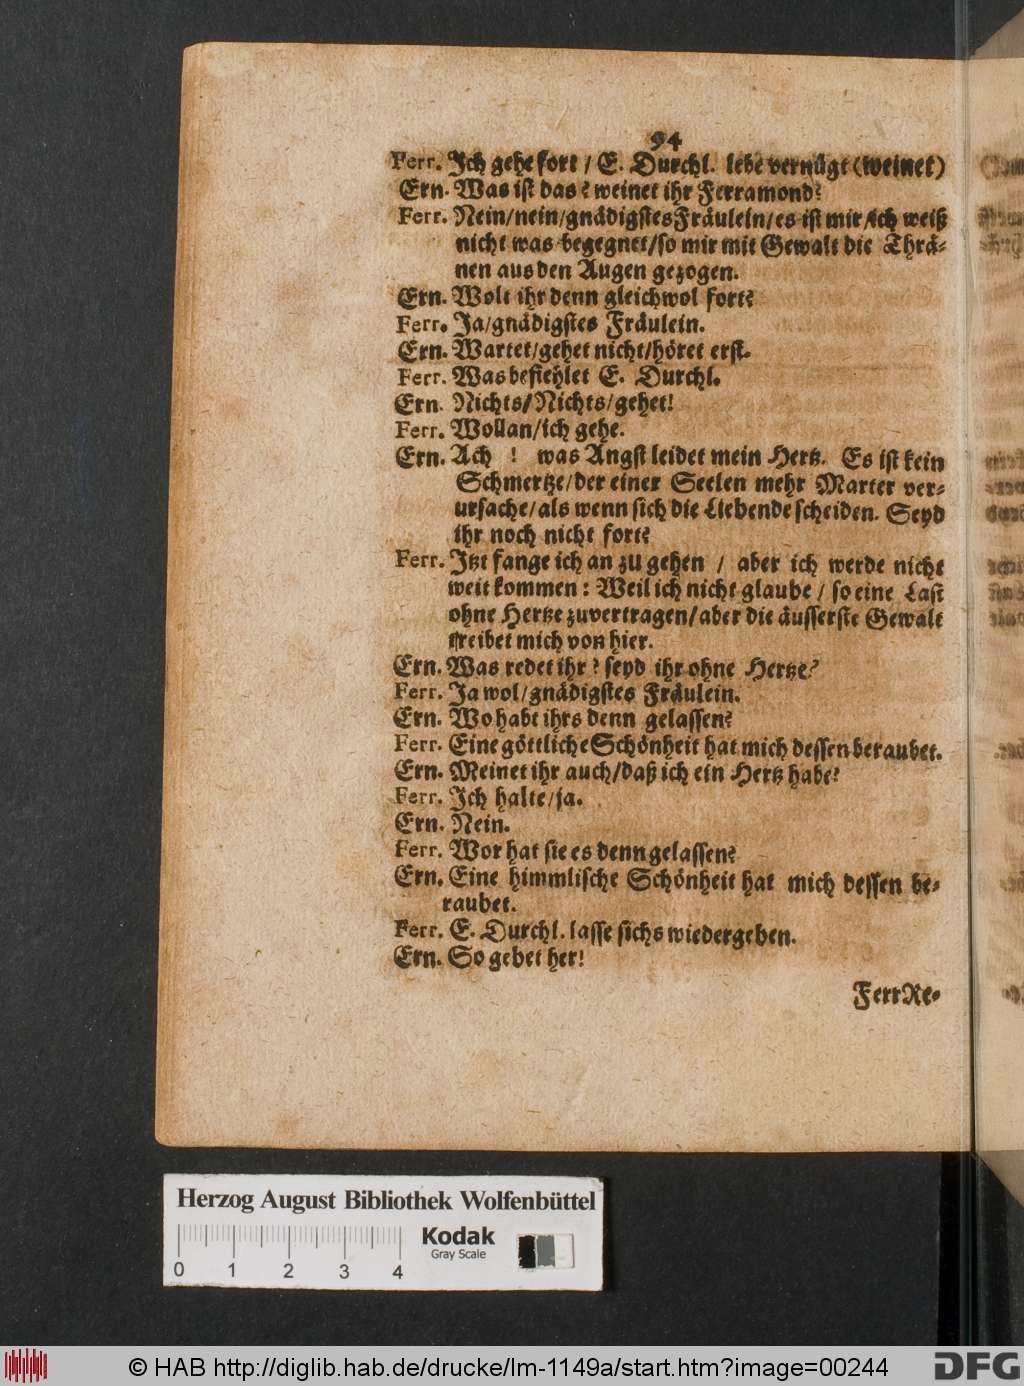 94
Ferr. Ich gehe fort / E. Durchl. lebe vernügt (weinet)
Ern. Was ist das? weinet ihr Ferramond?
Ferr. Nein/nein/gnädigstes Fräulein/es ist mir/ich weiß
nicht was begegnet/so mir mit Gewalt die Thrä-
nen aus den Augen gezogen.
Ern. Wolt ihr denn gleichwol fort?
Ferr. Ja/gnädigstes Fräulein.
Ern. Wartet/gehet nicht/höret erst.
Ferr. Was befiehlet E. Durchl.
Ern. Nichts/Nichts/gehet!
Ferr. Wollan/ich gehe.
Ern. Ach ! was Angst leidet mein Hertz. Es ist kein
Schmertze/der einer Seelen mehr Marter ver-
ursache/als wenn sich die Liebende scheiden. Seyd
ihr noch nicht fort?
Ferr. Jtzt fange ich an zu gehen / aber ich werde nicht
weit kommen: Weil ich nicht glaube / so eine Last
ohne Hertze zuvertragen/aber die äusserste Gewalt
treibet mich von hier.
Ern. Was redet ihr? seyd ihr ohne Hertze?
Ferr. Ja wol/gnädigstes Fräulein.
Ern. Wo habt ihrs denn gelassen?
Ferr. Eine göttliche Schönheit hat mich dessen beraubet.
Ern. Meinet ihr auch/daß ich ein Hertz habe?
Ferr. Ich halte/ja.
Ern. Nein.
Ferr. Wor hat sie es denn gelassen?
Ern. Eine himmlische Schönheit hat mich dessen be-
raubet.
Ferr. E. Durchl. lasse sichs wiedergeben.
Ern. So gebet her!
Ferr Re-
Herzog August Bibliothek Wolfenbüttel
Kodak
Gray Scale
0 1 2 3 4
© HAB http://diglib.hab.de/drucke/lm-1149a/start.htm?image=00244
DFG